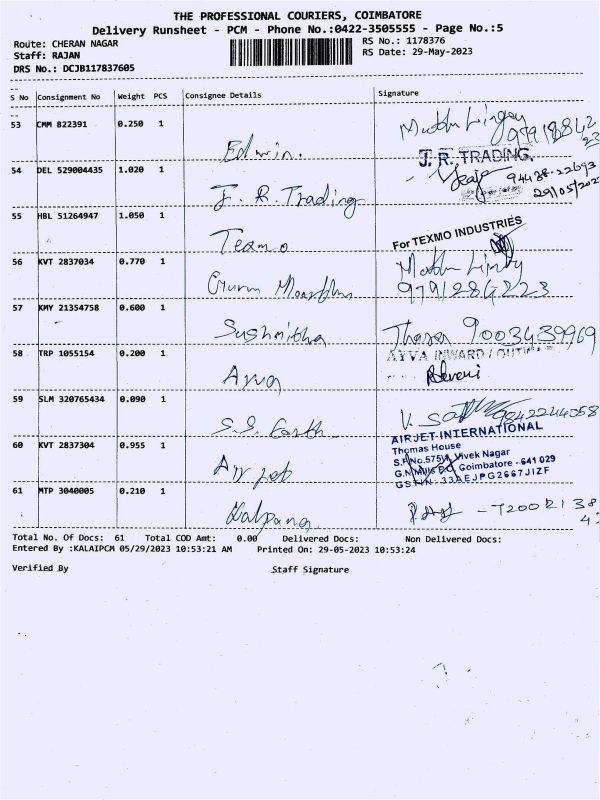 THE PROFESSIONAL COURIERS, COIMBATORE
Delivery Runsheet - PCM - Phone No.:0422-3505555 - Page No.:5
Route: CHERAN NAGAR
RS No.: 1178376
Staff: RAJAN
RS Date: 29-May-2023
DRS No.: DCJB117837605
S No Consignment No Weight PCS Consignee Details Signature
53 CMM 822391 0.250 1
Edwin.
54 DEL 529004435 1.020 1
J. R. TRADING.
94438-22693
29/05/202
J. R. Trading
55 HBL 51264947 1.050 1
For TEXMO INDUSTRIES
56 KVT 2837034 0.770 1
57 KMY 21354758 0.600 1
Sushmitha
9003439969
58 TRP 1055154 0.200 1
AYVA INWARD /
59 SLM 320765434 0.090 1
S.S. Earth
9842244058
60 KVT 2837304 0.955 1
AIRJET INTERNATIONAL
Thomas House
S.F.No.575/1, Vivek Nagar
G.N.Mills P.O, Coimbatore - 641 029
GSTIN: 33AEJPG2667J1ZF
61 MTP 3040005 0.210 1
Kalpana
Total No. Of Docs: 61 Total COD Amt: 0.00 Delivered Docs: Non Delivered Docs:
Entered By :KALAIPCM 05/29/2023 10:53:21 AM Printed On: 29-05-2023 10:53:24
Verified By Staff Signature